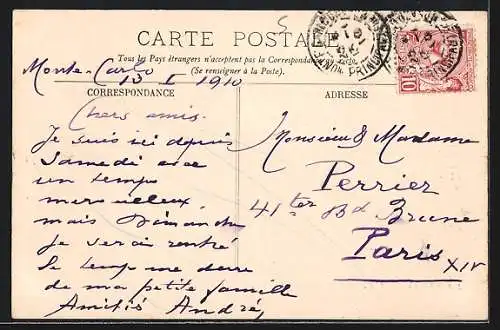 CARTE POSTALE
Tous les Pays étrangers n'acceptent pas la Correspondance
(Se renseigner à la Poste).
Monte-Carlo
13 1 1910
CORRESPONDANCE
ADRESSE
Chers amis.
Je suis ici depuis
Samedi avec
un temps
merveilleux
mais Dimanche
je serai rentré
Le temps me dure
de ma petite famille
Amitiés André
Monsieur & Madame
Perrier
41 ter Bd Brune
Paris
XIV
10